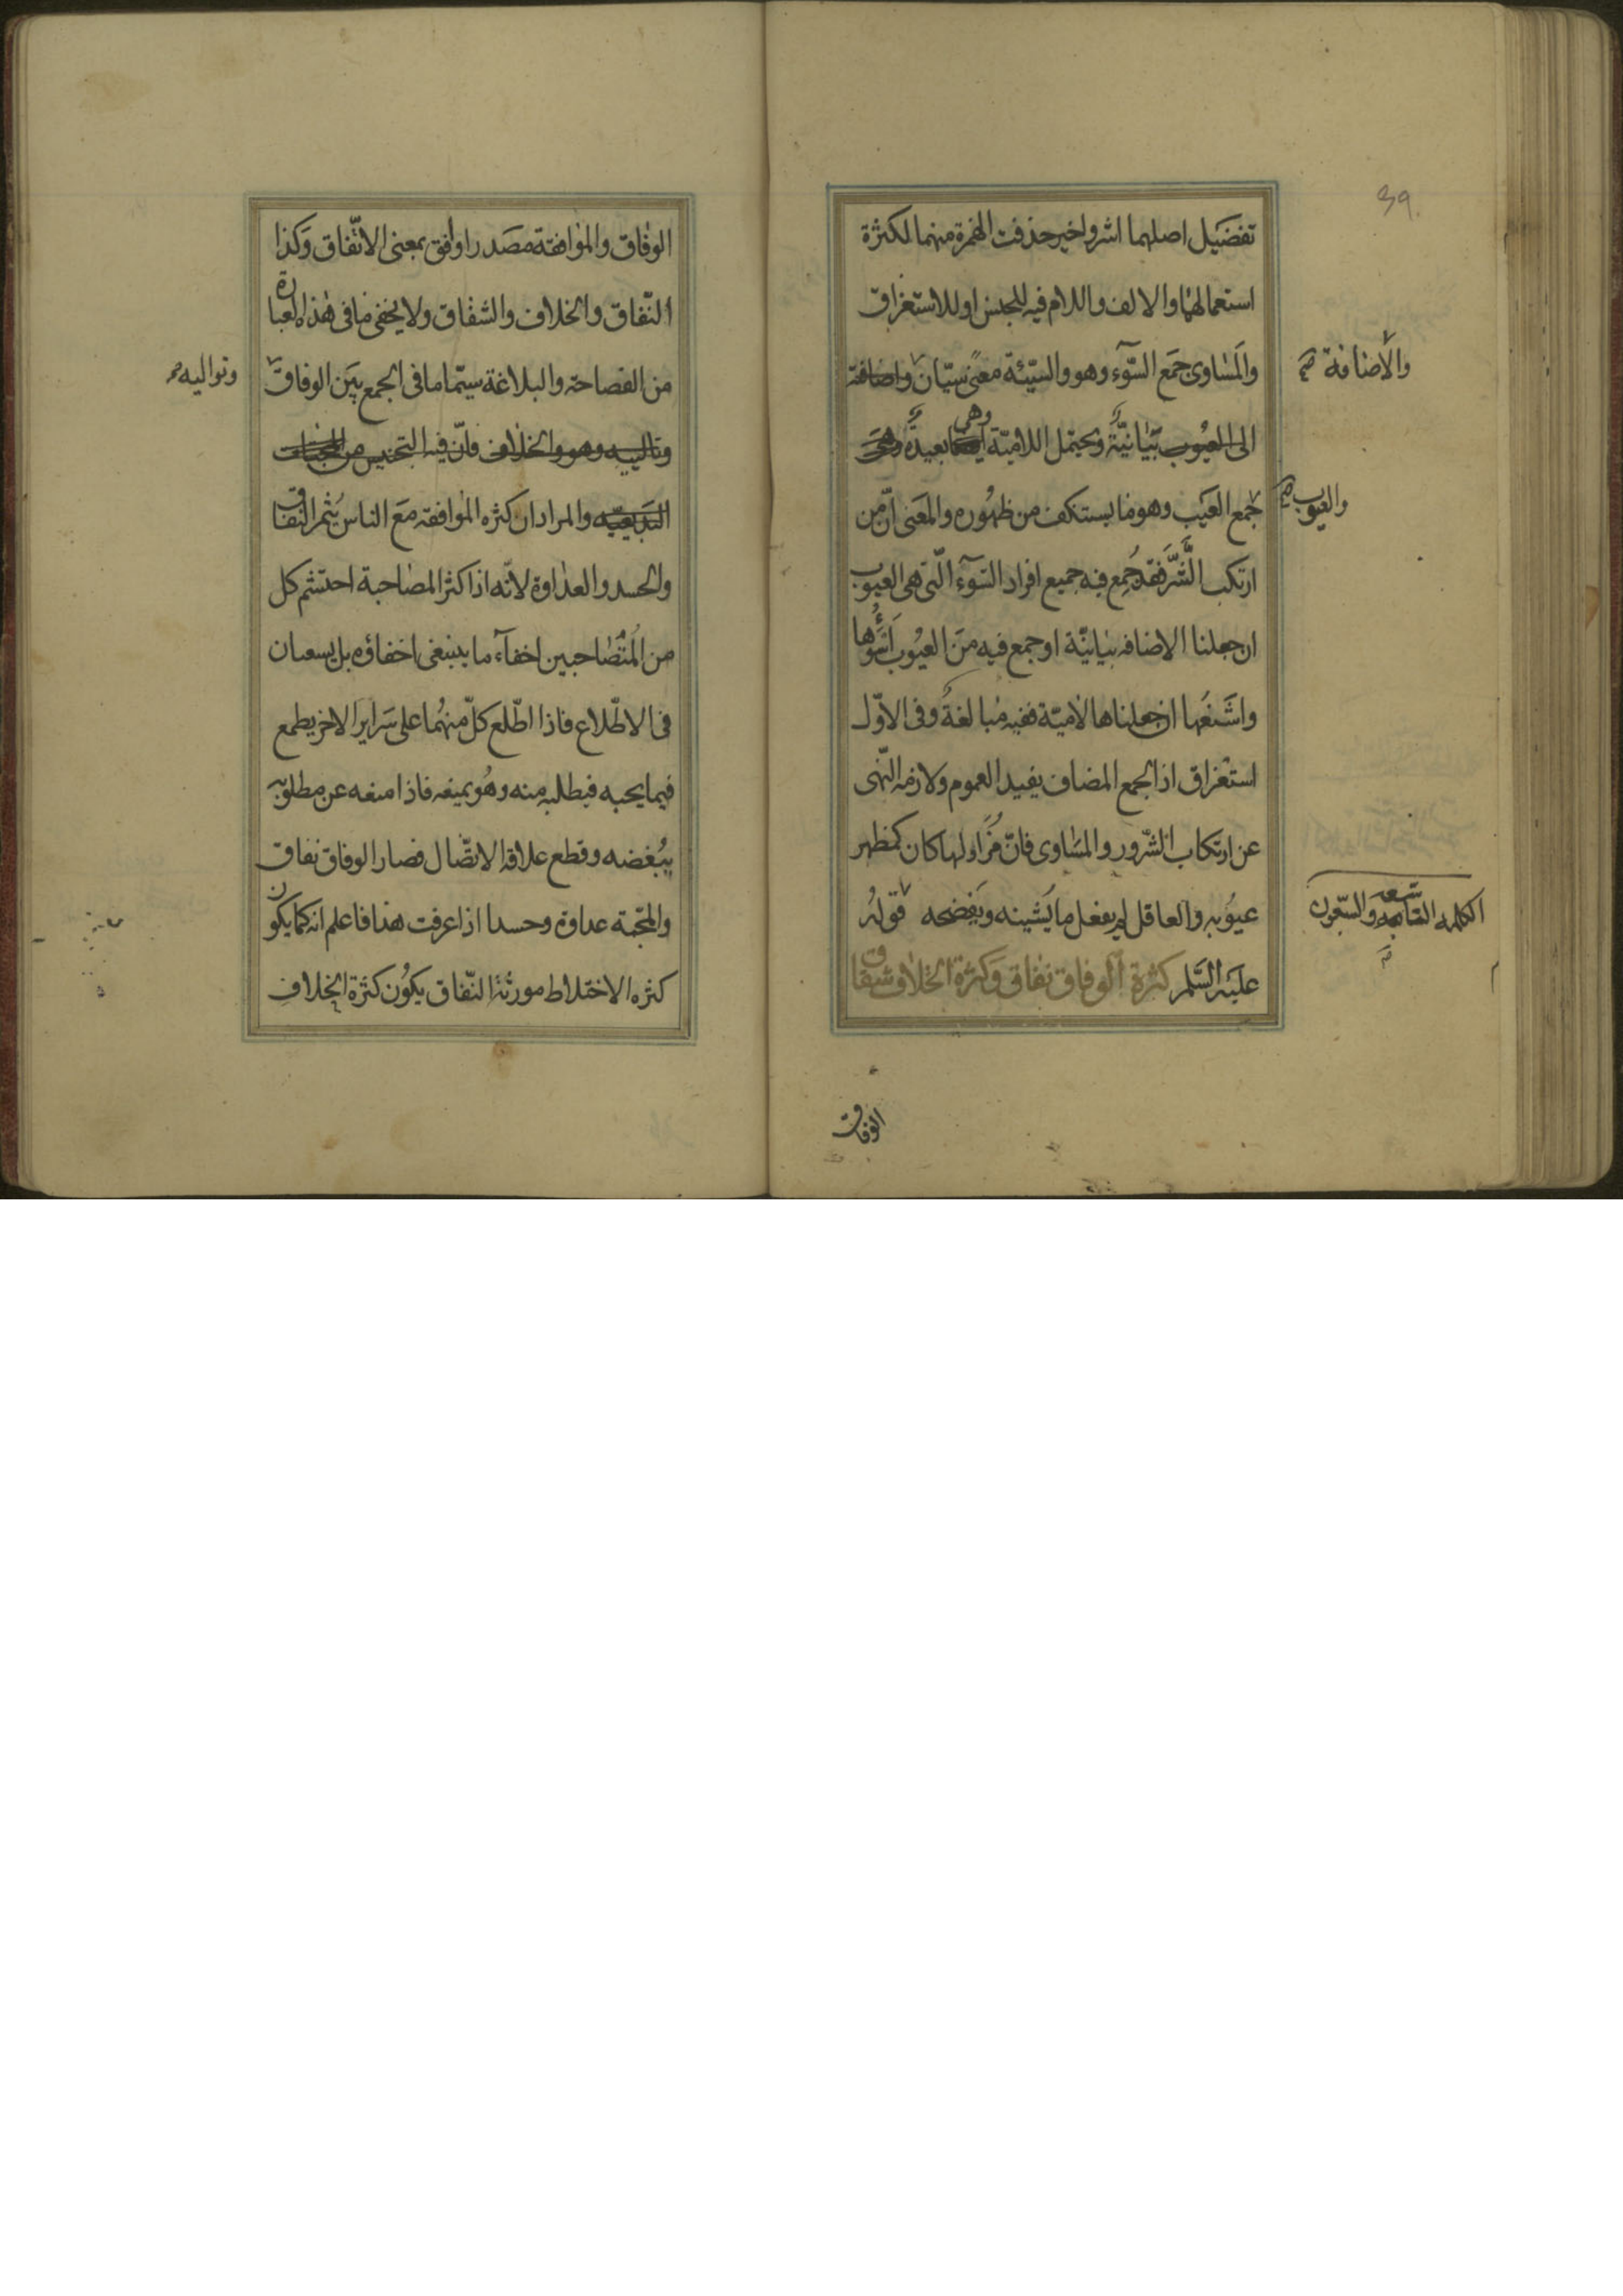 39
تفضيل اصلهما اشر واخير حذفت الهمزة منهما لكثرة
استعمالهما والالف واللام فيه للجنس او للاستغراق
والمساوى جمع السّوء وهو والسيّئة معنى سيّان واضافته
والاضافة صح
الى العيوب بيانيّة ويحتمل اللاميّة وهى بعيدة وهى
جمع العيب وهو ما يستنكف من ظهوره والمعنى انّ من
والعيوب صح
ارتكب الشّرّ فقد جُمع فيه جميع افراد السّوء الّتى هى العيوب
ان جعلنا الاضافه بيانيّة او جمع فيه من العيوب اسوؤها
واشنعها ان جعلناها لاميّة ففيه مبالغة وفى الاوّل
استغراق اذ الجمع المضاف يفيد العموم ولازمه النّهى
عن ارتكاب الشّرور والمساوى فانّ مزاولها كان كمظهر
عيوبه والعاقل لم يفعل ما يشينه ويفضحه قوله
الكلمه التاسعه والسّبعون
عليه السّلم كثرة الوفاق نفاق وكثرة الخلاف شقاق
الوفاق
الوفاق والموافقة مصدر اوافق بمعنى الاتّفاق وكذا
النّفاق والخلاف والشقاق ولا يخفى ما فى هذه العبارة
من الفصاحة والبلاغة سيّما ما فى الجمع بين الوفاق
وتواليه صح
وتاليه وهو والخلاف فانّ فيه التجنيس من المحسنات
البديعيّه والمراد ان كثره الموافقه مع الناس يثمر النفاق
والحسد والعداوة لانّه اذا كثر المصاحبة احتشم كل
من المتصاحبين اخفاء ما ينبغى اخفاؤه بل يسعيان
فى الاطّلاع فاذا اطّلع كلّ منهما على سراير الاخر يطمع
فيما يحبه فيطلبه منه وهو يمنعه فاذا منعه عن مطلوبه
يبغضه وقطع علاقه الاتصّال فصار الوفاق نفاق
والمحّبة عداوة وحسدا اذا عرفت هذا فاعلم انه كما يكون
كثره الاختلاط مورثة النّفاق يكون كثرة الخلاف